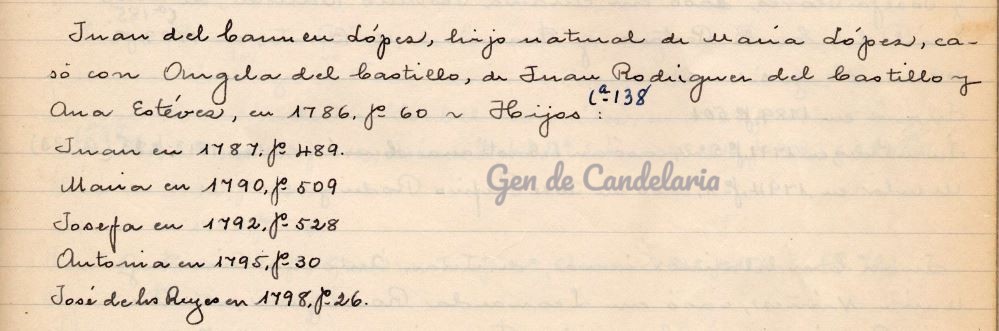 Juan del Carmen López, hijo natural de María López, ca-
só con Angela del Castillo, de Juan Rodriguez del Castillo y
Ana Estévez, en 1786, fº 60 ~ Hijos:
Cª-138
Juan en 1787, fº 489.
Gen de Candelaria
María en 1790, fº 509
Josefa en 1792, fº 528
Antonia en 1795, fº 30
José de los Reyes en 1798, fº 26.